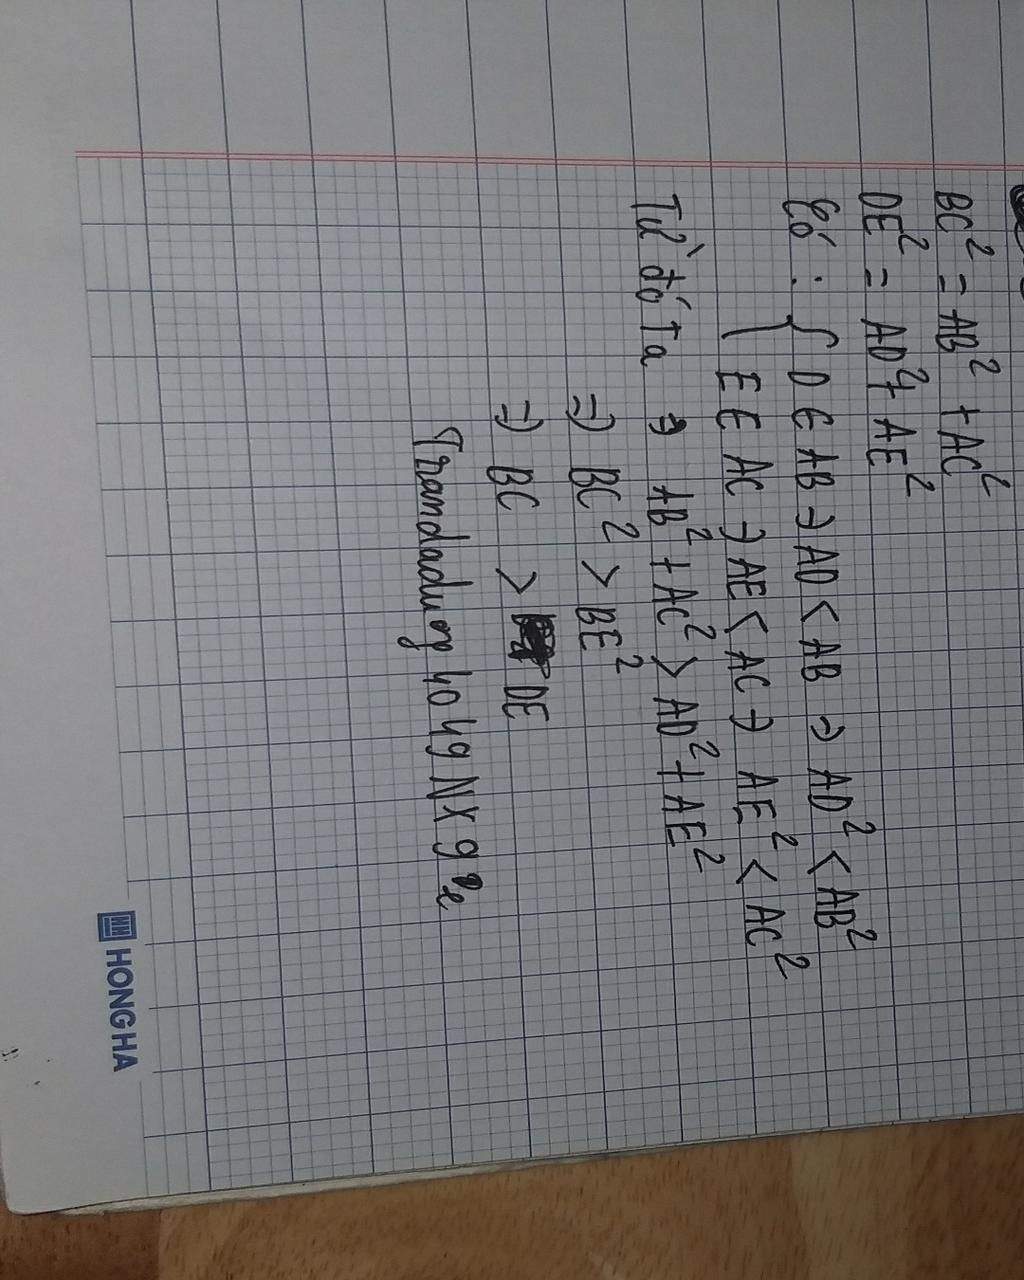 BC² = AB² + AC²
DE² = AD² + AE²
Có : { D ∈ AB ⇒ AD < AB ⇒ AD² < AB²
{ E ∈ AC ⇒ AE < AC ⇒ AE² < AC²
Từ đó ta ⇒ AB² + AC² > AD² + AE²
⇒ BC² > BE²
⇒ BC > DE
HONG HA